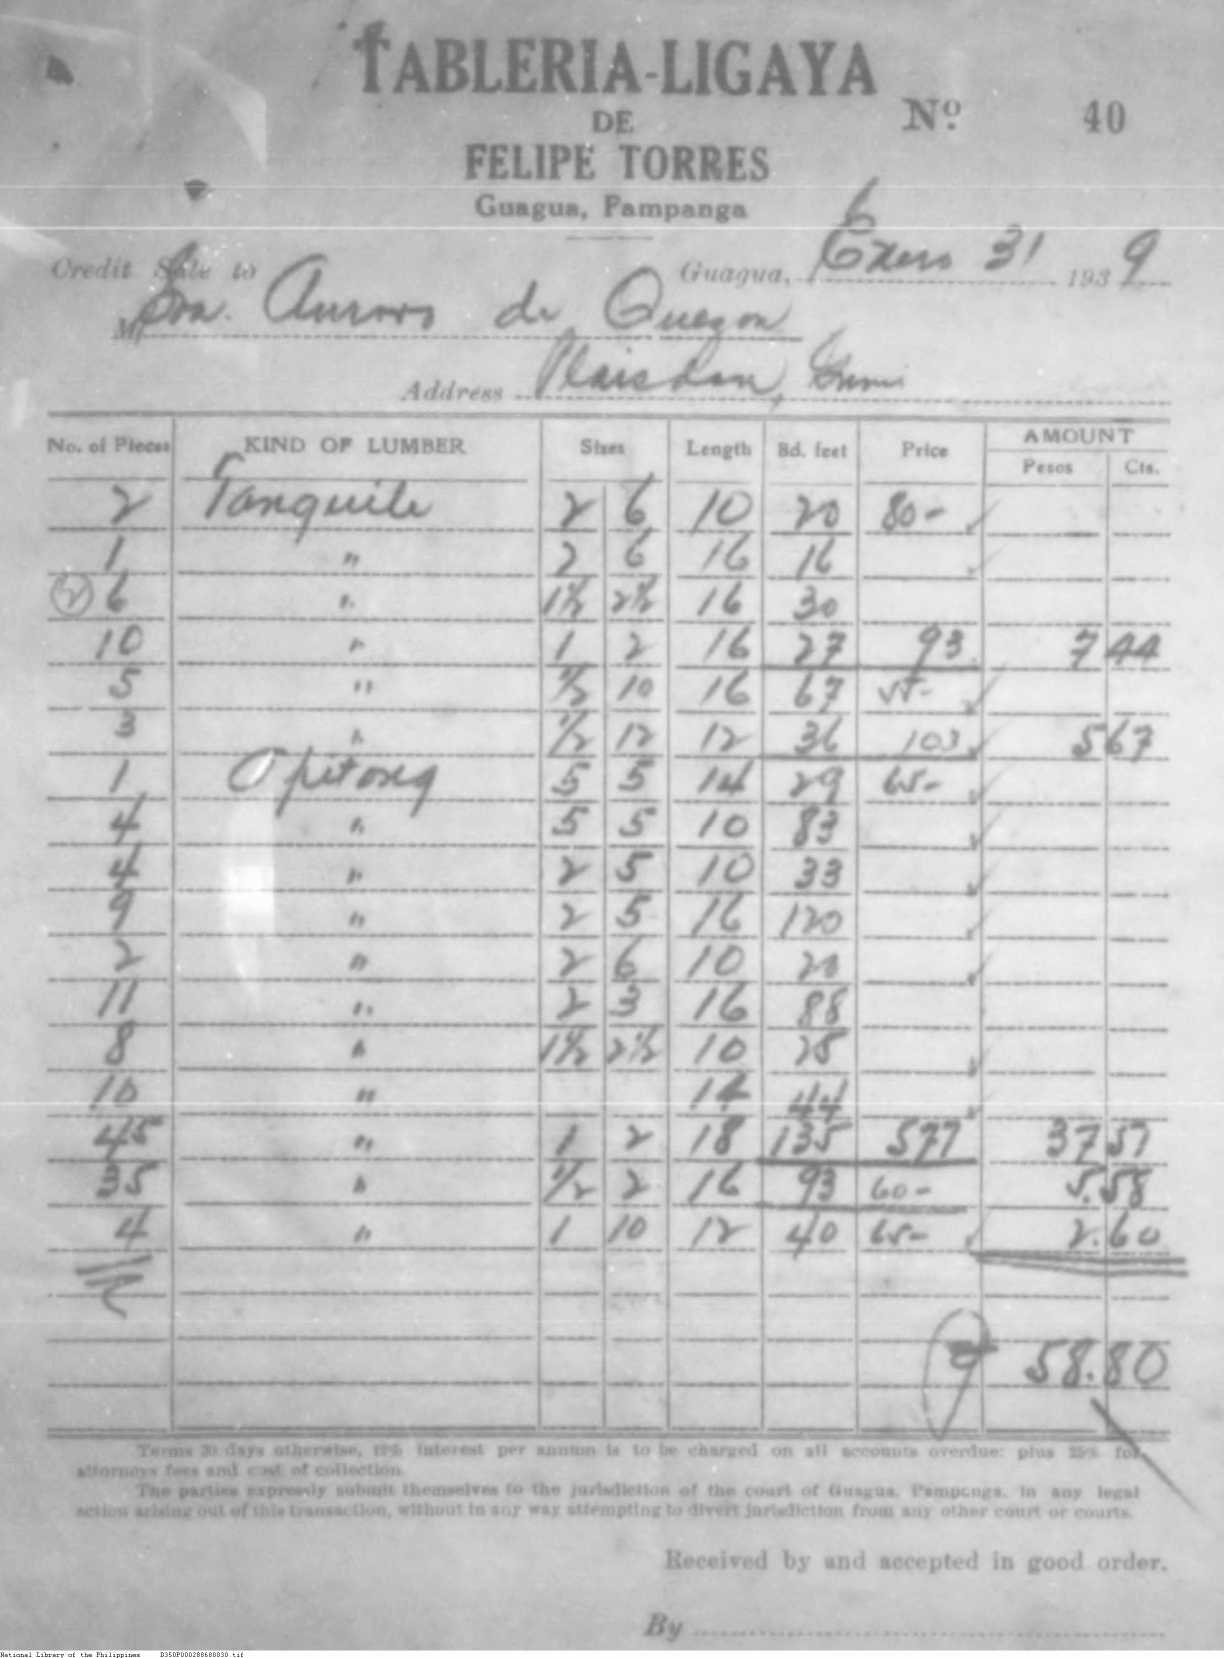 TABLERIA-LIGAYA
DE
FELIPE TORRES
Guagua, Pampanga
Nº. 40
Credit Sale to Guagua, Enero 31 1939
M Sra. Aurora de Quezon
Address
No. of Pieces KIND OF LUMBER Sizes Length Bd. feet Price AMOUNT
Pesos Cts.
2 Tanquile 2 6 10 20 80-
1 " 2 6 16 16
6 " 1½ 2½ 16 30
10 " 1 2 16 27 93 7 44
5 " ½ 10 16 67 55-
3 " ½ 12 12 36 103 5 67
1 Apitong 5 5 14 29 65-
4 " 5 5 10 83
4 " 2 5 10 33
9 " 2 5 16 120
2 " 2 6 10 20
11 " 2 3 16 88
8 " 1½ 2½ 10 25
10 " 14 44
45 " 1 2 18 135 577 37 51
35 " ½ 2 16 93 60- 5.58
4 " 1 10 12 40 65- 2.60
₱ 58.80
Terms 30 days otherwise, 12% interest per annum is to be charged on all accounts overdue: plus 25% for
attorneys fees and cost of collection.
The parties expressly submit themselves to the jurisdiction of the court of Guagua, Pampanga, in any legal
action arising out of this transaction, without in any way attempting to divert jurisdiction from any other court or courts.
Received by and accepted in good order.
By
National Library of the Philippines